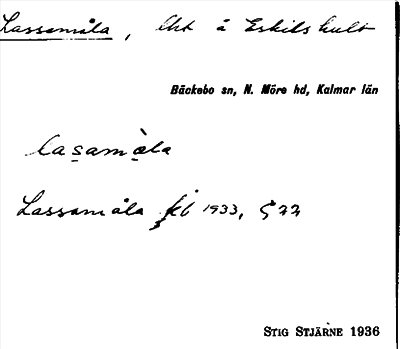 Lassamåla, lht å Eskilshult
Bäckebo sn, N. Möre hd, Kalmar län
lasamàla
Lassamåla kb 1933, S 77
STIG STJÄRNE 1936